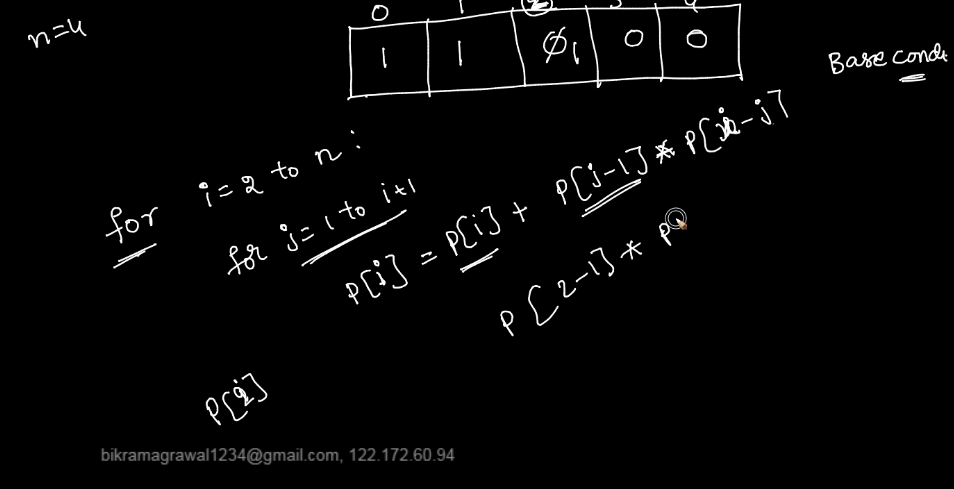 n=4
0 1 2 3 4
1 1 0 1 0 0
Base condt
for i=2 to n:
for j=1 to i+1
P[i] = P[i] + P[j-1] * P[i-j]
P[2-1] * P
P[2]
bikramagrawal1234@gmail.com, 122.172.60.94